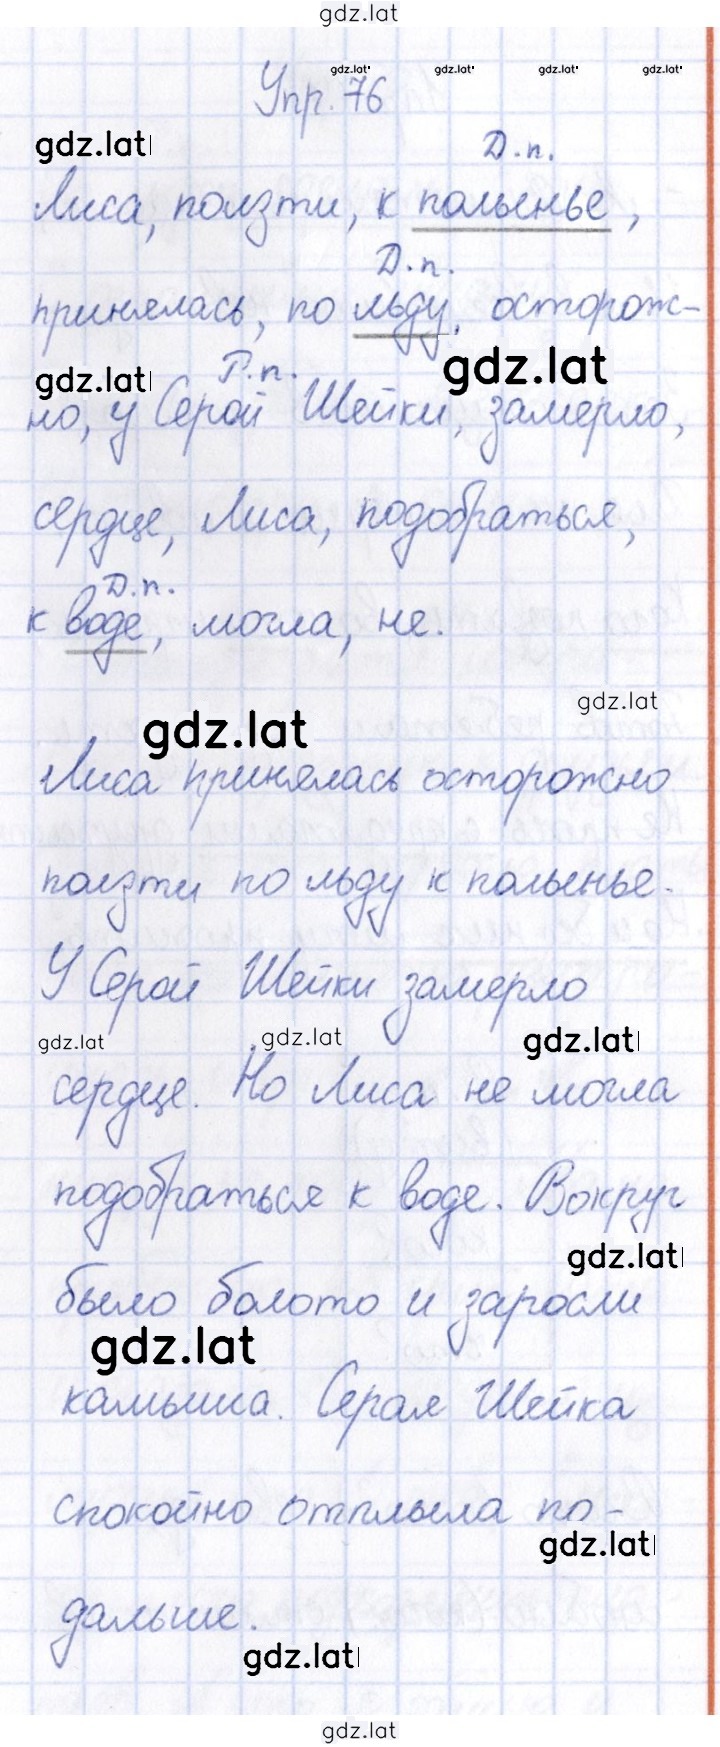 gdz.lat
gdz.lat gdz.lat gdz.lat gdz.lat
Упр. 76
gdz.lat
Д.п.
Лиса, ползти, к полынье,
Д.п.
принялась, по льду, осторож-
gdz.lat
gdz.lat
Р.п.
но, у Серой Шейки, замерло,
сердце, Лиса, подобраться,
Д.п.
к воде, могла, не.
gdz.lat
gdz.lat
Лиса принялась осторожно
ползти по льду к полынье.
У Серой Шейки замерло
gdz.lat gdz.lat gdz.lat
сердце. Но Лиса не могла
подобраться к воде. Вокруг
gdz.lat
было болото и заросли
gdz.lat
камыша. Серая Шейка
спокойно отплыла по-
gdz.lat
дальше.
gdz.lat
gdz.lat